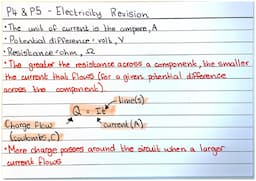 P4 & P5 - Electricity Revision
• The unit of current is the ampere, A
• Potential difference - volt, V
• Resistance - ohm, Ω
• The greater the resistance across a component, the smaller
the current that flows (for a given potential difference
across the component)
time(s)
Q = It
Charge Flow
(coulombs, C)
current (A)
• More charge passes around the circuit when a larger
current flows